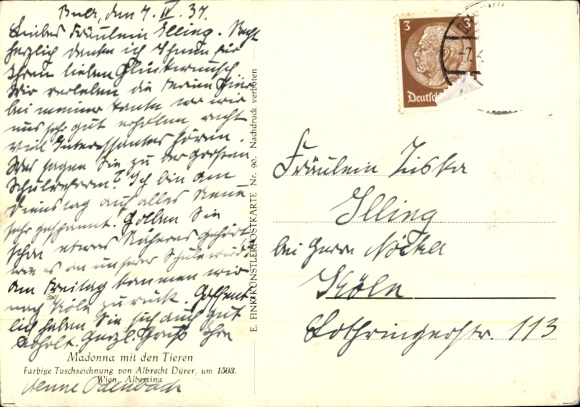 Buer, den 7. IV. 37.
Liebes Fräulein Illing. Recht
herzlich danke ich Ihnen für
Ihren lieben Glückwunsch.
Wir verleben die Ferien hier
bei meiner Tante wo wir
uns sehr gut erholen, recht
viel Interessantes hören.
Was sagen Sie zu der großen
Schulreform? Ich bin am
Dienstag auf alles Neue
sehr gespannt. Sollten Sie
schon etwas Näheres gehört
wie es an unserer Schule wird
Am Freitag kommen wir
nach Köln zurück. Hoffent-
lich haben Sie sich auch gut
erholt. Herzl. Gruß Ihre
Madonna mit den Tieren
Farbige Tuschzeichnung von Albrecht Dürer, um 1503.
Wien, Albertina
Odenbach
E. FINK KÜNSTLERPOSTKARTE Nr. 90. Nachdruck verboten
3 3
Fräulein
Illing
bei Herrn
Köln
Lothringerstr. 113